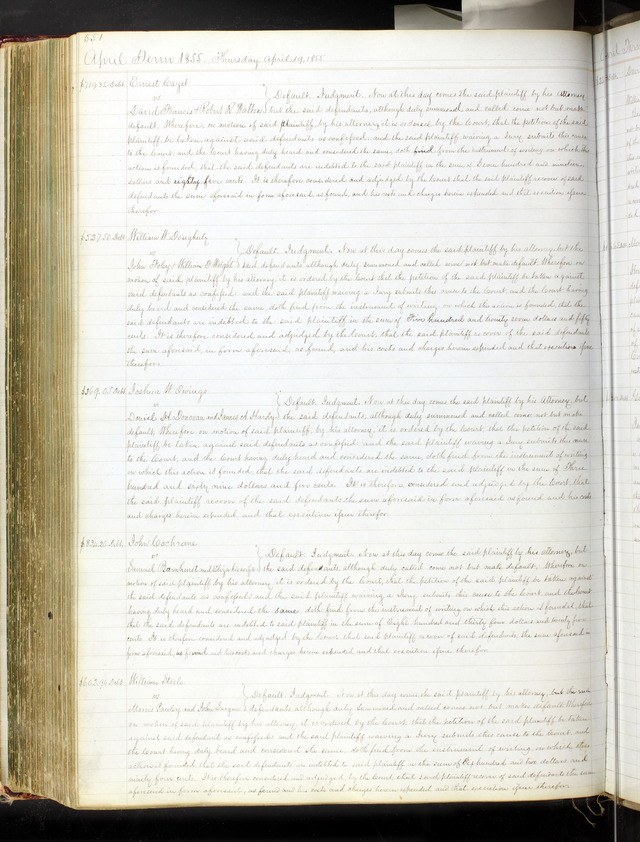 551
April Term 1855. Thursday April 19, 1855
$719.85 Debt Ernest
vs } Default. Judgment. Now at this day comes the said plaintiff by his attorney
David Frances & Robert R. but the said defendants, although duly summoned and called come not but make
default. Wherefore, on motion of said plaintiff, by his attorney, it is ordered by the Court, that the petition of the said
plaintiff be taken against said defendants as confessed and the said plaintiff waiving a Jury submits this cause
to the Court, and the Court having duly heard and considered the same, doth find from the instrument of writing on which this
action is founded, that the said defendants are indebted to the said plaintiff in the sum of Seven hundred and nineteen
dollars and eighty five cents. It is therefore considered and adjudged by the Court that the said plaintiff recover of said
defendants the sum aforesaid in form aforesaid as found, and his costs and charges herein expended and that execution issue
therefor.
$527.50 Debt William W. Dougherty
vs } Default. Judgment. Now at this day comes the said plaintiff by his attorney, but the
John Foley & William W. Wright said defendants although duly summoned and called come not but make default. Wherefore on
motion of said plaintiff by his attorney it is ordered by the Court that the petition of the said plaintiff be taken against
said defendants as confessed and the said plaintiff waiving a Jury submits this cause to the Court, and the Court having
duly heard and considered the same doth find from the instrument of writing on which this action is founded that the
said defendants are indebted to the said plaintiff in the sum of Five hundred and twenty seven dollars and fifty
cents. It is therefore considered and adjudged by the Court, that the said plaintiff recover of the said defendants
the sum aforesaid in form aforesaid as found and his costs and charges herein expended and that execution issue
therefor.
$369.05 Debt Joshua W. Owings
vs } Default. Judgment. Now at this day comes the said plaintiff by his Attorney, but
Daniel H. Donovan and James A. Hardy the said defendants, although duly summoned and called come not but make
default. Wherefore on motion of said plaintiff, by his attorney, it is ordered by the Court, that the petition of the said
plaintiff be taken against said defendants as confessed; and the said plaintiff waiving a Jury submits this cause
to the Court, and the Court having duly heard and considered the same, doth find, from the instrument of writing
on which this action is founded, that the said defendants are indebted to the said plaintiff in the sum of Three
hundred and sixty nine dollars and five cents. It is therefore considered and adjudged by the Court that
the said plaintiff recover of the said defendants the sum aforesaid in form aforesaid as found and his costs
and charges herein expended, and that execution issue therefor.
$834.25 Debt John Cochrane
vs } Default. Judgment. Now at this day comes the said plaintiff by his attorney, but
Barnhurst and the said defendants, although duly called come not but make default. Wherefore on
motion of said plaintiff by his attorney it is ordered by the Court, that the petition of the said plaintiff be taken against
the said defendants as confessed; and the said plaintiff waiving a Jury, submits this cause to the Court, and the Court
having duly heard and considered the same, doth find from the instrument of writing on which this action is founded, that
that the said defendants are indebted to said plaintiff in the sum of Eight hundred and thirty four dollars and twenty five
cents. It is therefore considered and adjudged by the Court that said plaintiff recover of said defendants, the sum aforesaid in
form aforesaid, as found and his costs and charges herein expended, and that execution issue therefor.
$602.94 Debt William Steele
vs } Default. Judgment. Now at this day comes the said plaintiff by his attorney, but the said
and John defendants although duly summoned and called comes not, but makes default. Wherefore
on motion of said plaintiff by his attorney, it is ordered by the Court that the petition of the said plaintiff be taken
against said defendant as confessed; and the said plaintiff waiving a Jury submits this cause to the Court, and
the Court having duly heard and considered the same doth find from the instrument of writing, on which this
action is founded that the said defendants are indebted to said plaintiff in the sum of Six hundred and two dollars and
ninety four cents. It is therefore considered and adjudged by the Court that said plaintiff recover of said defendants the sum
aforesaid in form aforesaid, as found and his costs and charges herein expended and that execution issue therefor.